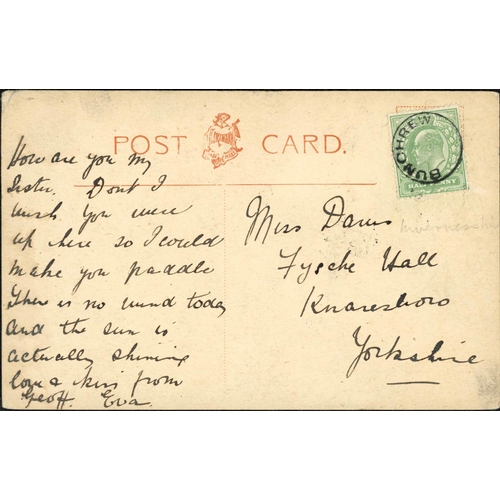 POST CARD.
BUNCHREW
HALFPENNY
How are you my
Sister. Dont I
wish you were
up here so I could
make you paddle
There is no wind today
and the sun is
actually shining
love & kiss from
Geoff. Eva.
Miss Davis
Fysche Hall
Knaresboro
Yorkshire